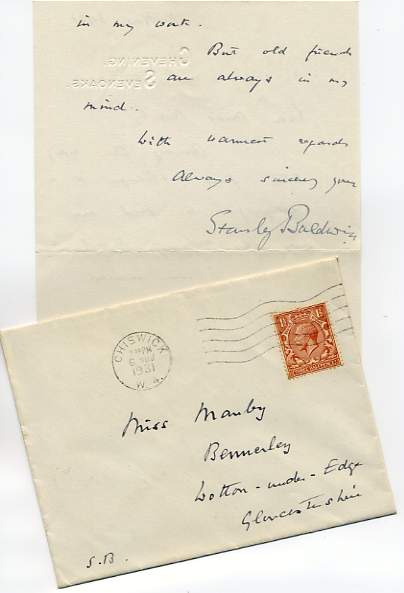 in my work.
But old friends
are always in my
mind.
With warmest regards
Always sincerely yours
Stanley Baldwin
CHEVENING.
SEVENOAKS.
CHISWICK
1931
W.4.
Miss Manby
Bennerley
Wotton-under-Edge
Gloucestershire
S.B.